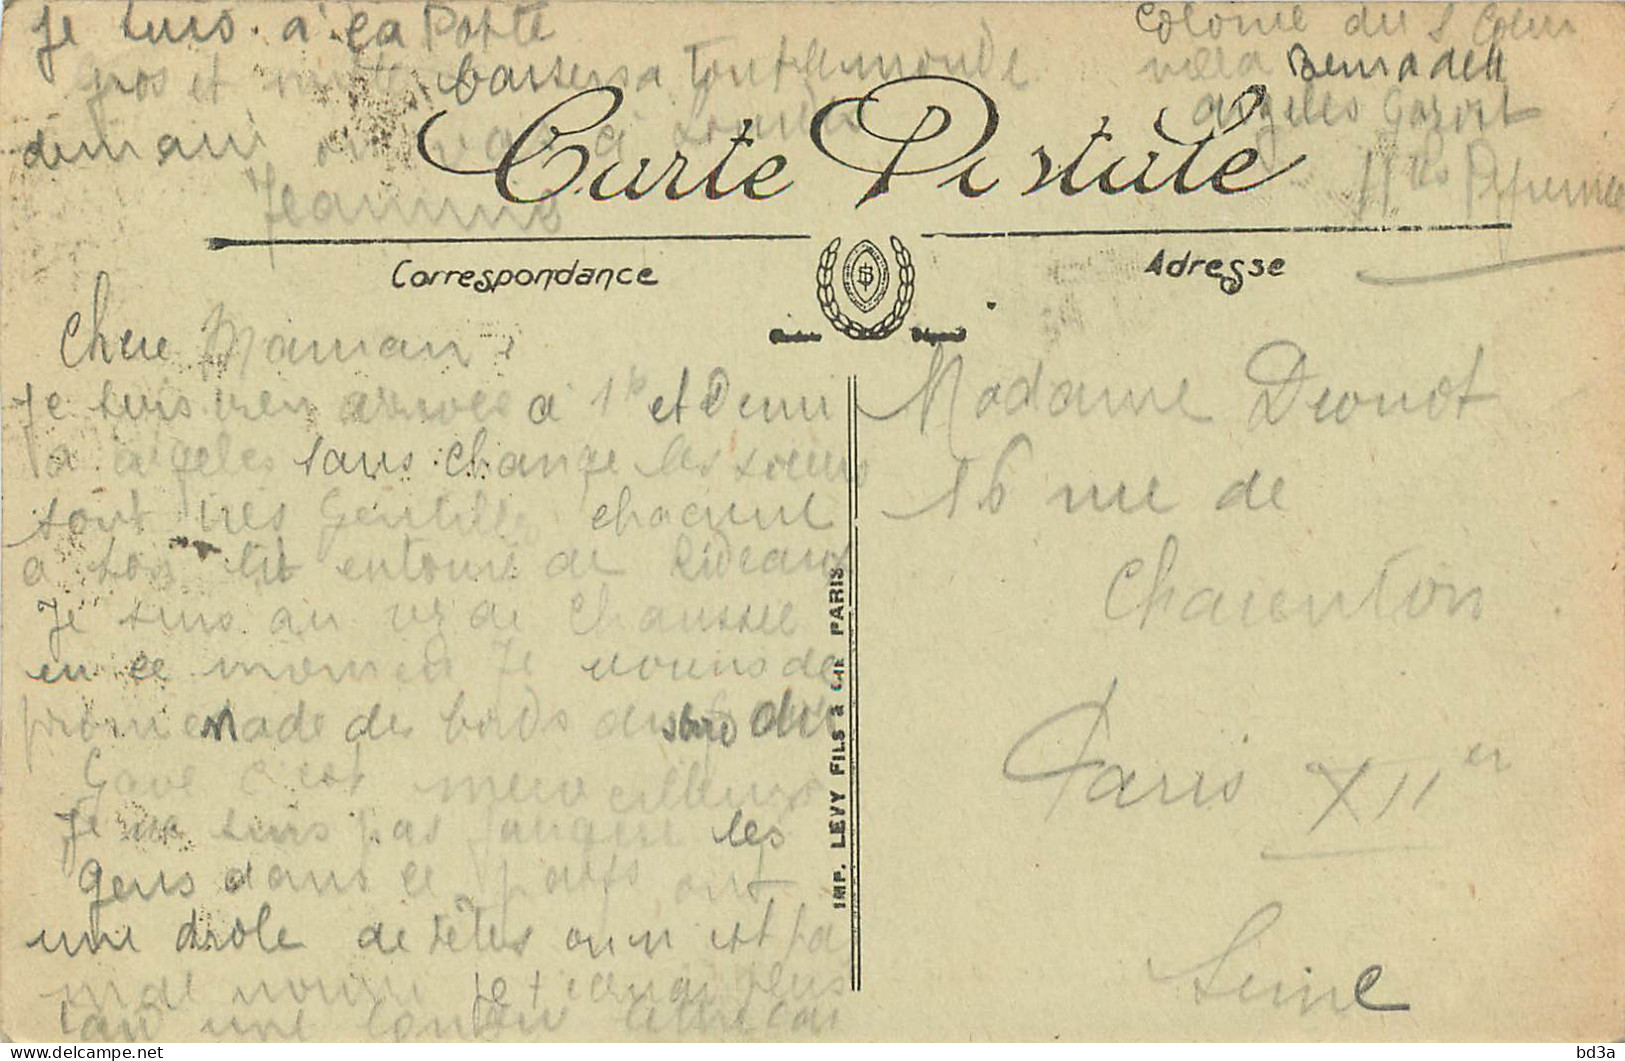 Je suis à ça Porte
gros et baisers a tout le monde
demain on va à Lourdes
Jeannine
Colonie du S Coeur
villa Bernadett
argeles Gazost
Htes Pyrenee
Carte Postale
Correspondance
Adresse
Chere Maman
Je suis bien arrivée a 1h et Demi
a argeles sans change les soeurs
sont tres Gentilles chacune
a son lit entouré de Rideaux
Je suis au rez de Chaussee
en ce moment Je viens de
promenade des bords du
Gave c'est merveilleux
Je ne suis pas les
gens dans ce pays ont
une drole de têtes on n est pa
mal nourri Je t ecrirai plus
tard une longue lettre car
Madame Dionot
16 rue de
Charenton
Paris XII er
Seine
IMP. LEVY FILS & CIE PARIS
bd3a